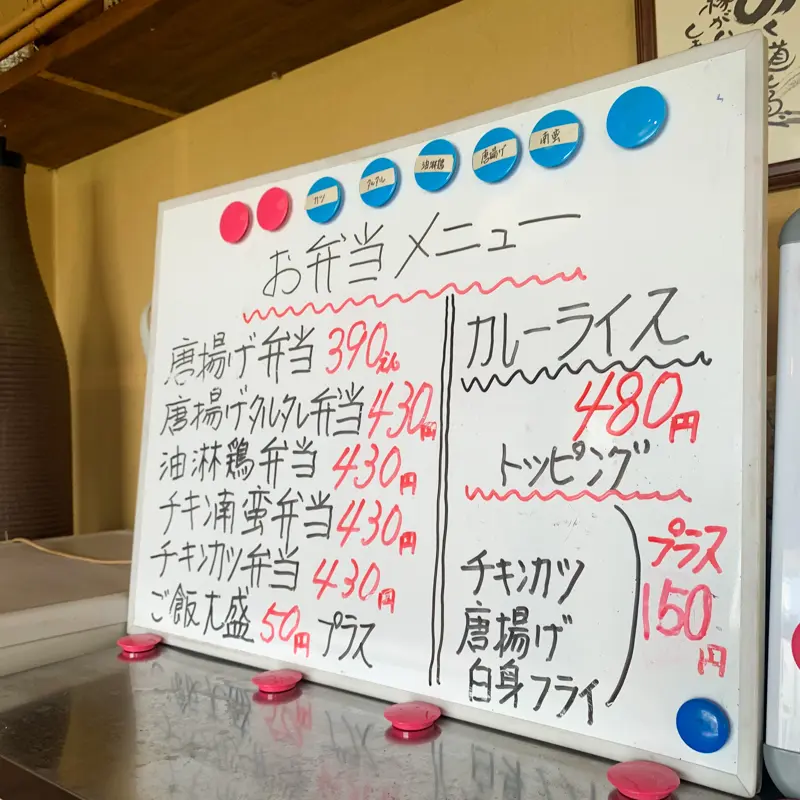 カツ
タルタル
油淋鶏
唐揚げ
南蛮
お弁当メニュー
唐揚げ弁当 390えん
唐揚げタルタル弁当 430円
油淋鶏弁当 430円
チキン南蛮弁当 430円
チキンカツ弁当 430円
ご飯大盛 50円 プラス
カレーライス
480円
トッピング
チキンカツ
唐揚げ
白身フライ
プラス
150
円